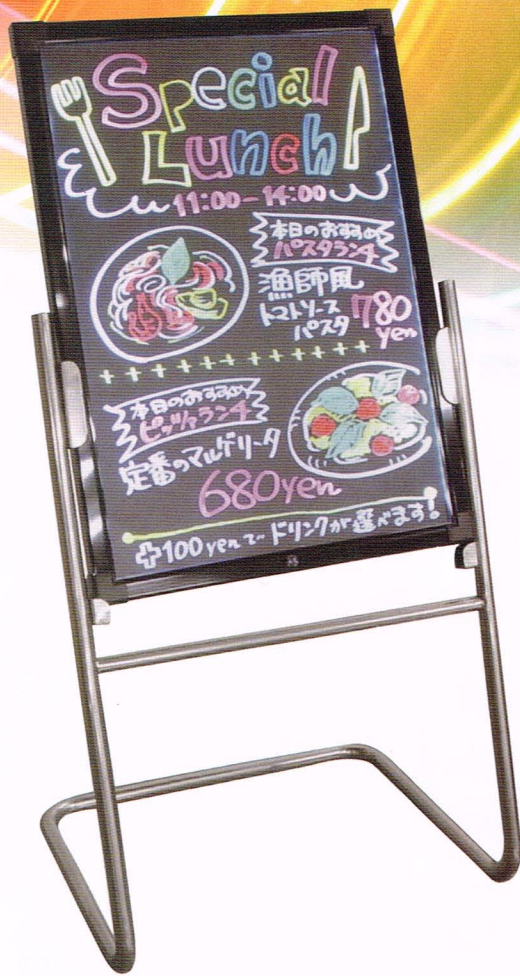 Special
Lunch
11:00-14:00
本日のおすすめ
パスタランチ
漁師風
トマトソース
パスタ
780
yen
本日のおすすめ
ピッツァランチ
定番のマルゲリータ
680yen
+100yenでドリンクが選べます!